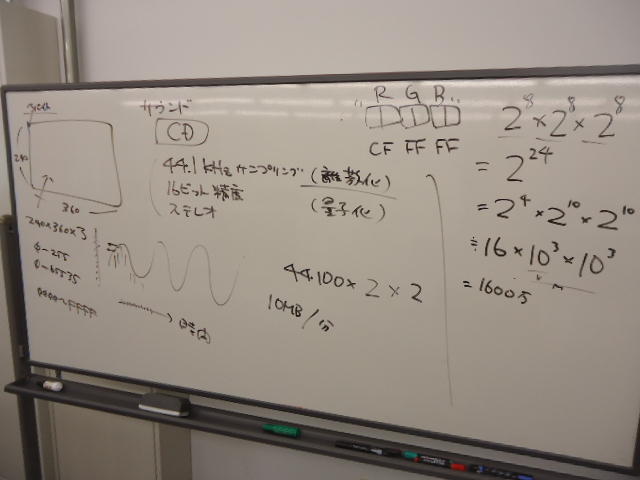 240
360
240×360×3
0-255
0-65535
0000~FFFF
サウンド
CD
44.1kHz サンプリング (離散化)
16ビット精度 (量子化)
ステレオ
時間
44.100×2×2
10MB/分
R G B
CF FF FF
2^8×2^8×2^8
=2^24
=2^4×2^10×2^10
≒16×10^3×10^3
=1600万